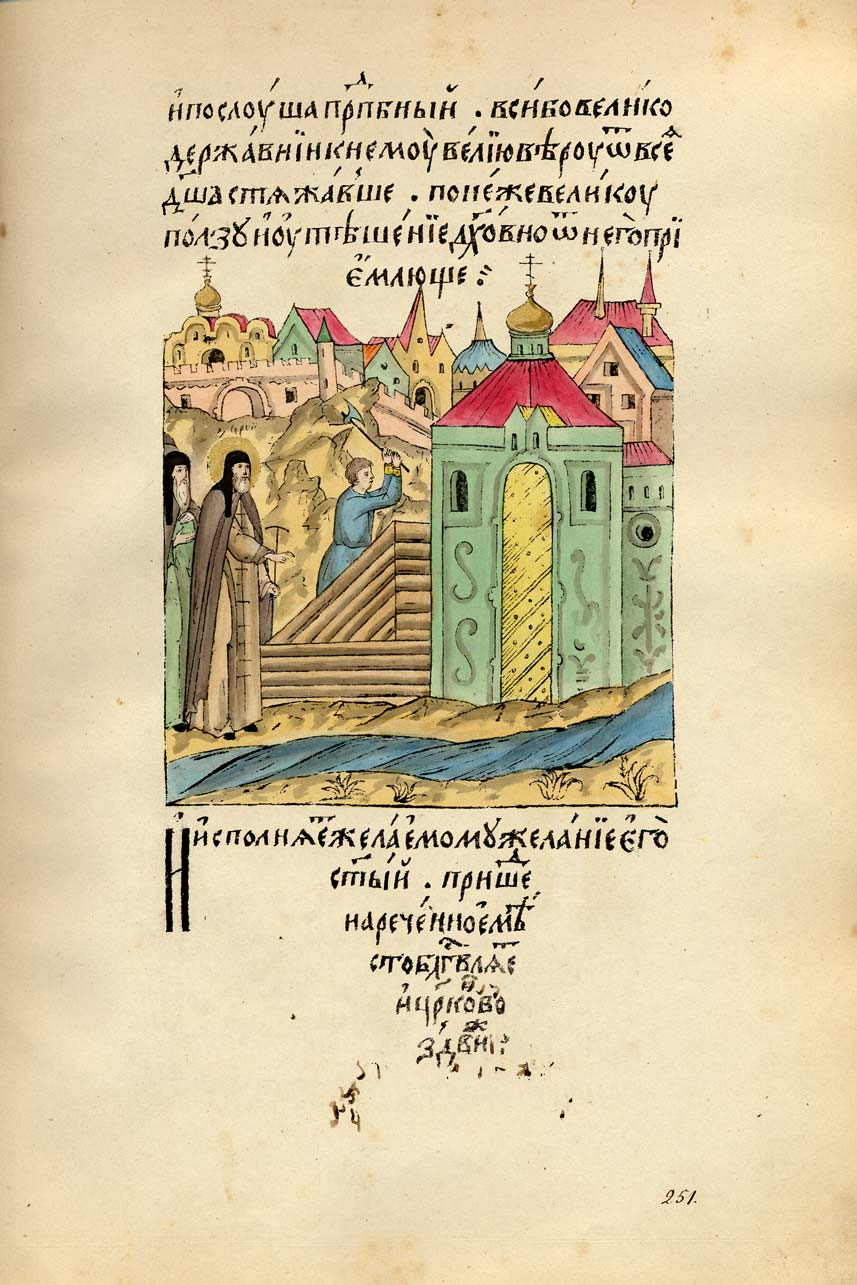 И҆послоу́ша прⷣпбный . вси́ бо вели́ко
держа́внїи к немоу̀ ве́лїю вѣ́роу ѿ всеѧ̀
дш҃а стѧжа́вше . поне́же вели́коу
по́лзу и҆ оу҆тѣше́нїе дх҃о́вно ѿ него̀ прї
е́млюще :
Серги
И҆ исполнѧ́еⷮ жела́емому жела́нїе є҆го̀
ст҃ы́й . прише́ⷣ
нарече́нное мѣ́
сто бл҃гвлѧ́еⷮ
и҆ цр҃ковь
251.